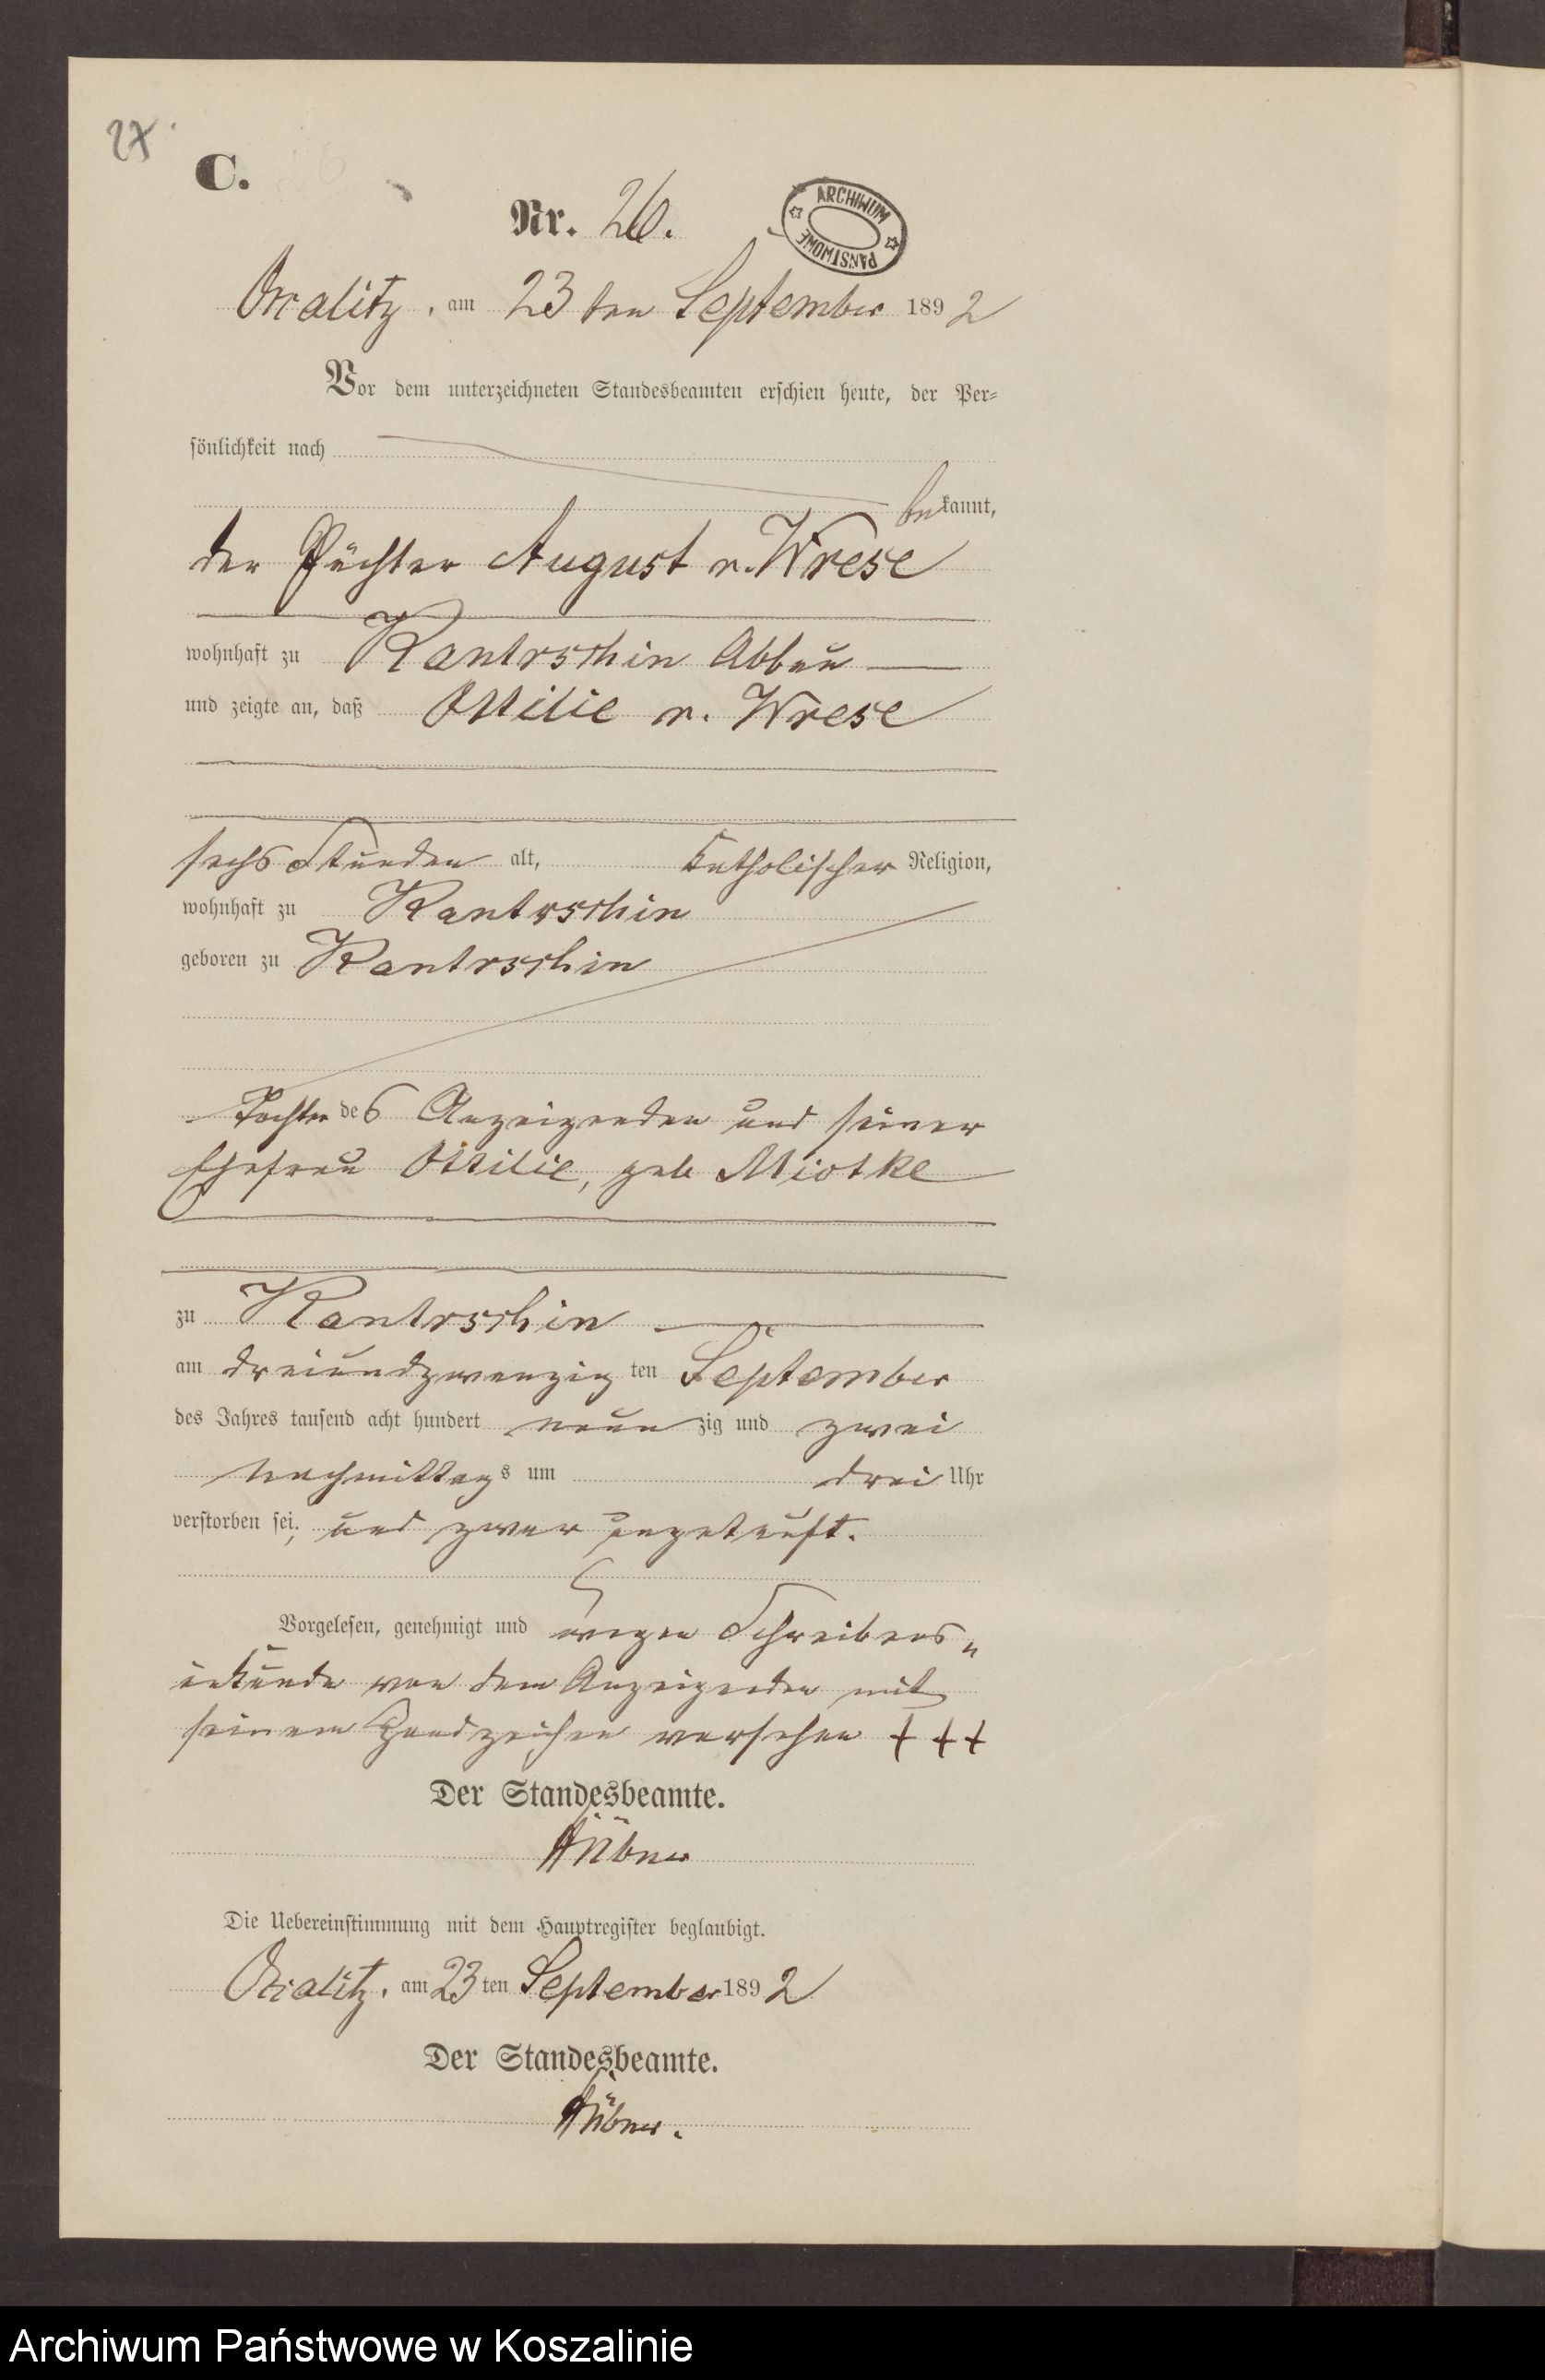 27.
C.
Nr. 26.
ARCHIWUM PAŃSTWOWE
Occalitz, am 23 ten September 1892
Vor dem unterzeichneten Standesbeamten erschien heute, der Per-
sönlichkeit nach
bekannt,
der Pächter August v. Wrese
wohnhaft zu Kantrschin Abbau
und zeigte an, daß Ottilie v. Wrese
sechs Stunden alt, katholischer Religion,
wohnhaft zu Kantrschin
geboren zu Kantrschin
Tochter des Anzeigenden und seiner
Ehefrau Ottilie, geb Miotke
zu Kantrschin
am dreiundzwanzig ten September
des Jahres tausend acht hundert neunzig und zwei
Nachmittags um drei Uhr
verstorben sei, und zwar ungetauft.
Vorgelesen, genehmigt und wegen Schreibens„
unkunde von dem Anzeigenden mit
seinem Handzeichen versehen + + +
Der Standesbeamte.
Hübner
Die Uebereinstimmung mit dem Hauptregister beglaubigt.
Occalitz, am 23 ten September 1892
Der Standesbeamte.
Hübner.
Archiwum Państwowe w Koszalinie